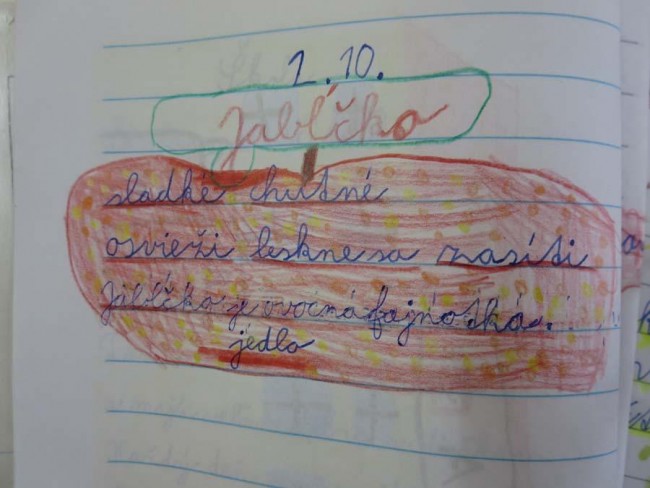 1.10.
Jabĺčko
sladké chutné
osvieži leskne sa zasíti
Jabĺčko je ovocná fajnôtká.
jedlo